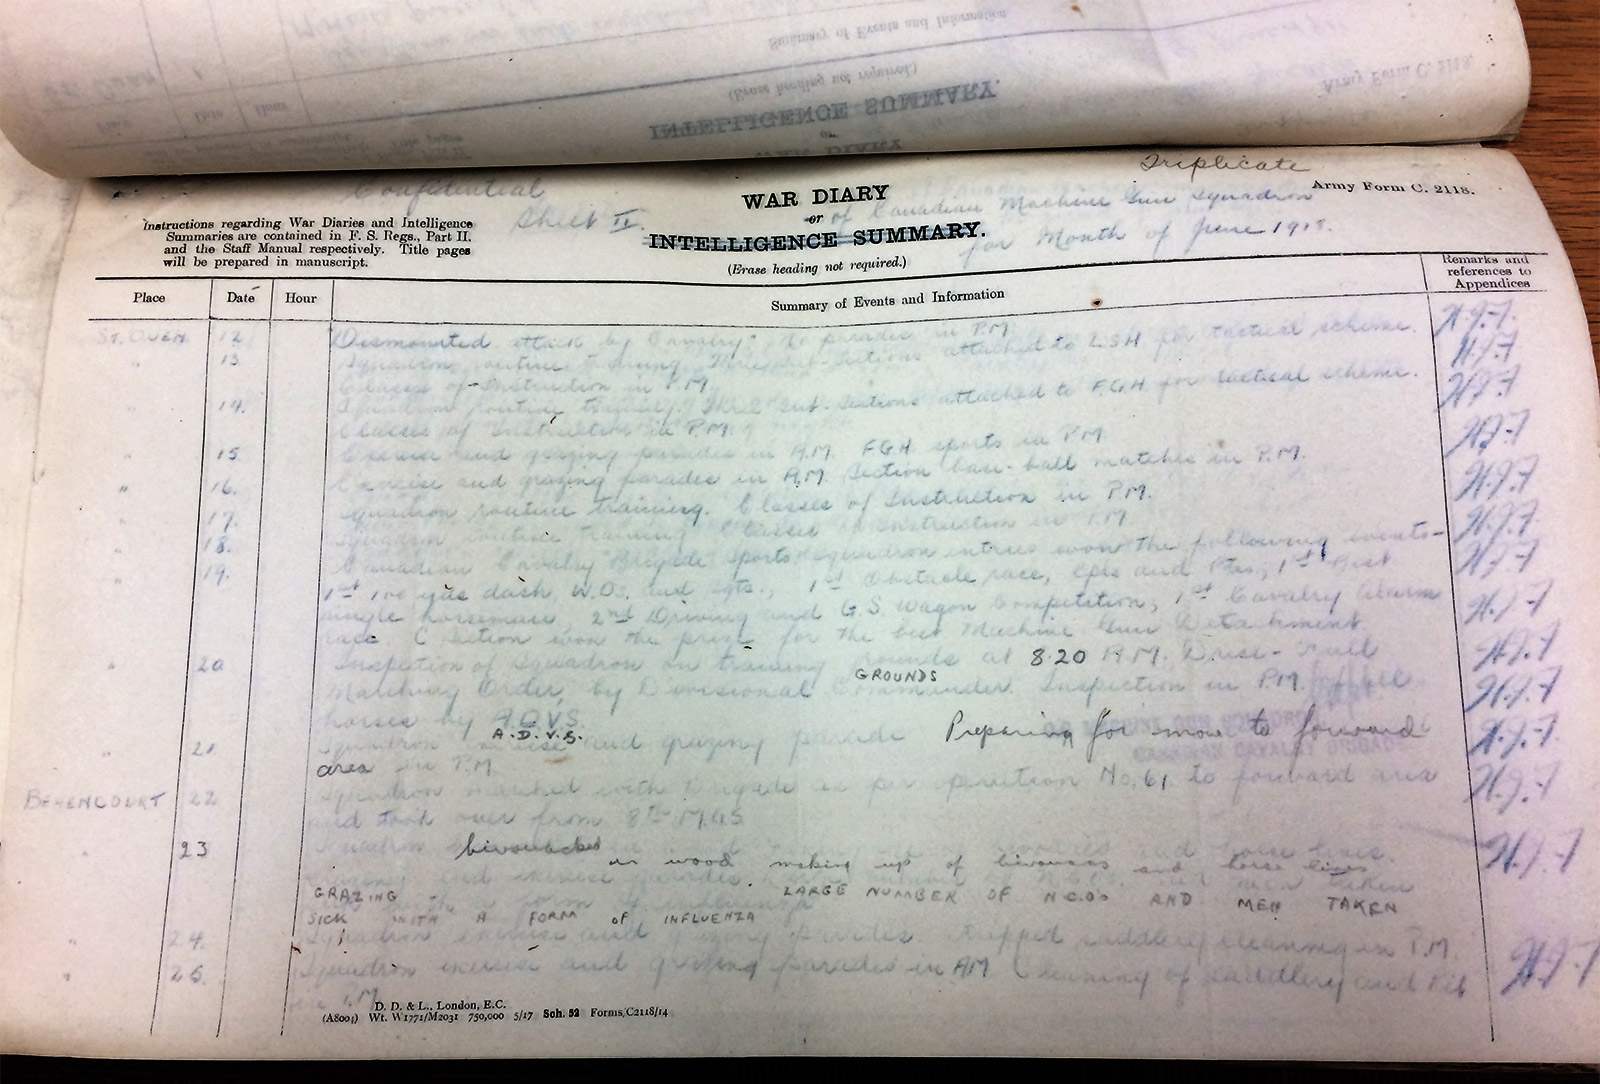 Triplicate
Confidential
Army Form C. 2118.
WAR DIARY
Instructions regarding War Diaries and Intelligence
Summaries are contained in F. S. Regs., Part II.
and the Staff Manual respectively. Title pages
will be prepared in manuscript.
Sheet II.
or of Canadian Machine Gun Squadron
INTELLIGENCE SUMMARY.
for Month of June 1918.
(Erase heading not required.)
Place Date Hour Summary of Events and Information Remarks and references to Appendices
St. Ouen 12 Dismounted attack by Cavalry. No parades in P.M.
" 13 Squadron routine training. Three sub-sections attached to LSH for tactical scheme.
Classes of Instruction in P.M.
" 14. Squadron routine training. Three sub-sections attached to F.G.H for tactical scheme.
Classes of Instruction in P.M.
15. Exercise and grazing parades in A.M. FGH sports in P.M.
" 16. Exercise and grazing parades in A.M. Section base-ball matches in P.M.
17. Squadron routine training. Classes of Instruction in P.M.
" 18. Squadron routine training Classes of Instruction in P.M.
" 19. Canadian Cavalry Brigade Sports. Squadron entries won the following events—
1st 100 yds dash, W.O.s and Sgts., 1st Obstacle race, Cpls and Ptes, 1st Best
single horseman, 2nd Driving and G.S. Wagon Competition, 1st Cavalry Alarm
race. C Section won the prize for the best Machine Gun Detachment.
" 20 Inspection of Squadron on training grounds at 8.20 A.M. Dress - Full
GROUNDS
Marching Order, by Divisional Commander. Inspection in P.M. of all
horses by A.D.V.S.
A.D.V.S.
" 21 Squadron exercise and grazing parade Preparing for move to forward
area in P.M.
BEHENCOURT 22 Squadron marched with Brigade as per operation No. 61 to forward area
and took over from 8th M.G.S.
" 23 Squadron bivouacked in wood making up of bivouacs and horse lines.
GRAZING and exercise parades. LARGE NUMBER OF N.C.O's AND MEN TAKEN
SICK WITH A FORM OF INFLUENZA
" 24. Squadron exercise and grazing parades. Stripped saddlery cleaning in P.M.
" 25. Squadron exercise and grazing parades in AM Cleaning of saddlery and kit
in P.M.
D. D. & L., London, E.C.
(A8004) Wt. W1771/M2031 750,000 5/17 Sch. 52 Forms/C2118/14